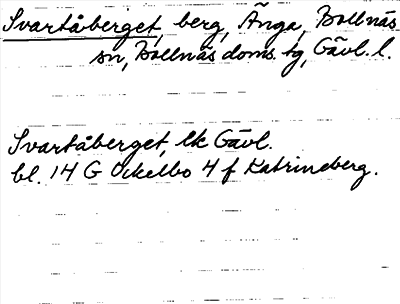 Svartåberget, berg, Änga, Bollnäs
sn, Bollnäs doms. tg, Gävl. l.
Svartåberget, lk Gävl.
bl. 14 G Ockelbo 4 f Katrineberg.